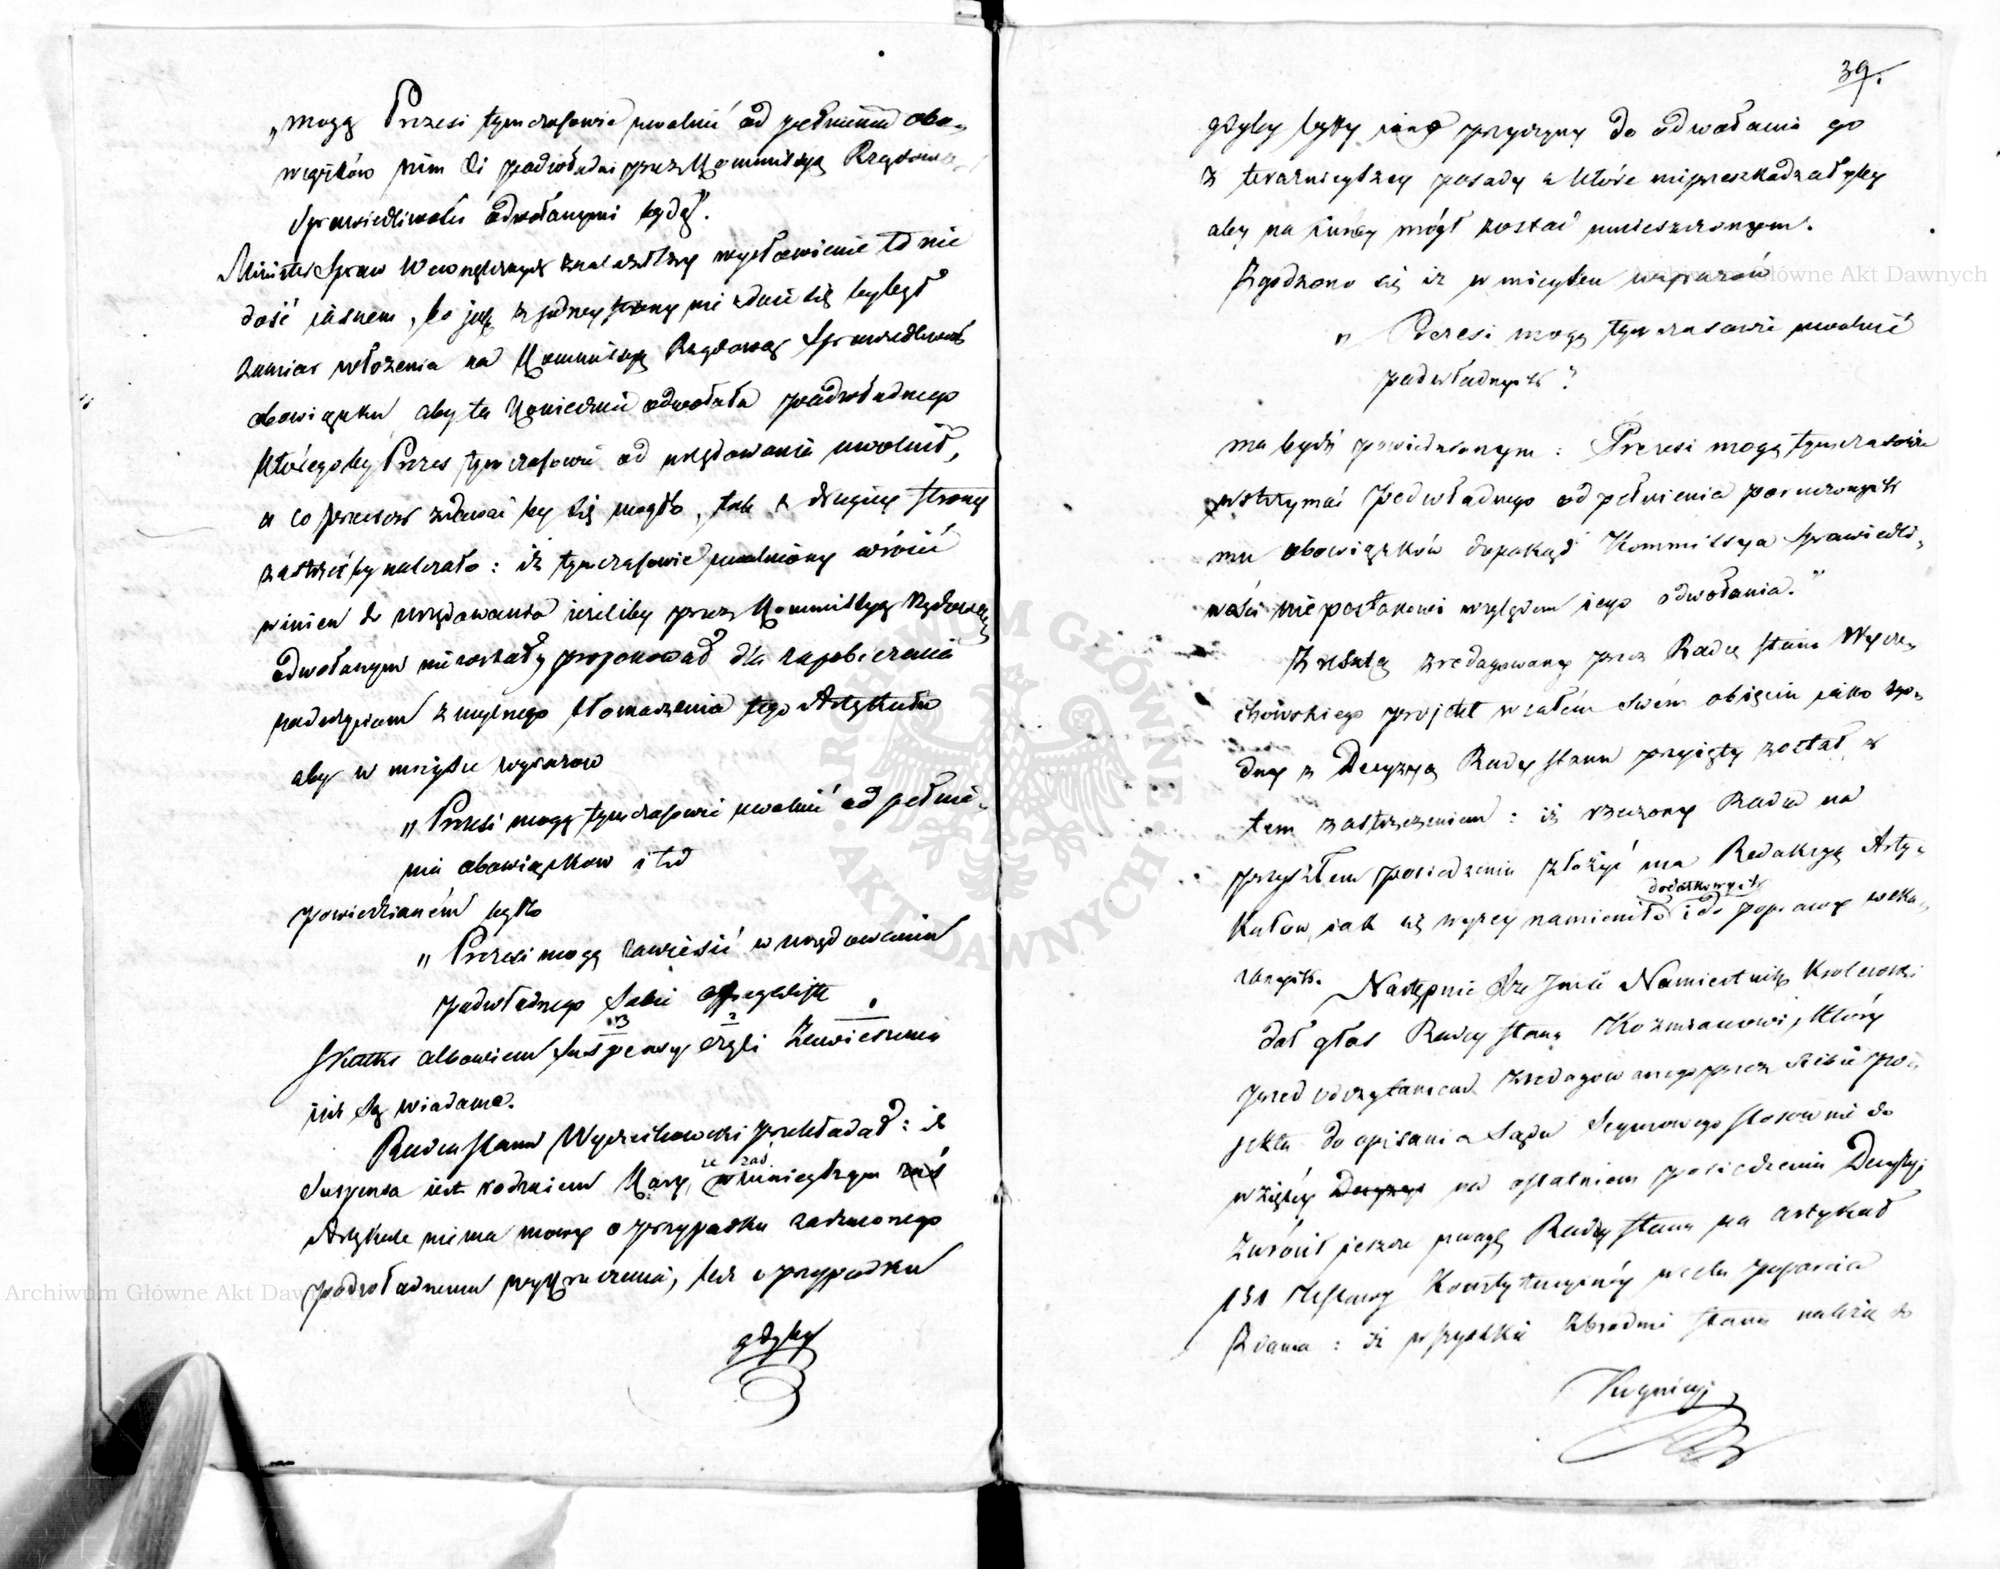 „mogą Prezesi tymczasowie uwolnić od pełnienia obo-
wiązków nim Ci podwładni przez Kommissyą Rządową
Sprawiedliwości odwołanymi będą".
Minister Spraw Wewnętrznych znalazłszy wysłowienie to nie
dość jasnem, bo jak z jedney strony nie zdaie się bydź
zamiar włożenia na Kommissyą Rządową Sprawiedliwości
obowiązku aby ta koniecznie odwołała podwładnego
któregoby Prezes tymczasowie od urzędowania uwolnił,
a co przecież zdawać by się mogło, tak z drugiey strony
zastrzedz by należało: iż tymczasowie uwolniony wrócić
winien do urzędowania ieśliby przez Kommissyą Rządową
odwołanym nie został, proponował dla zapobieżenia
nadużyciom z mylnego tłomaczenia tego Artykułu
aby w mieyscu wyrazow
„Prezesi mogą tymczasowie uwolnić od pełnie-
nia obowiązkow i t d
powiedzianém było
„Prezesi mogą zawiesić w urzędowaniu
podwładnego Sobie
Skutki albowiem Suspensy czyli Zawieszenia
iuż są wiadome.
Radca Stanu Wyczechowski przekładał: iż
Suspensa iest rodzaiem Kary, że zaś w ninieyszym zaś
Artykule nie ma mowy o przypadku zarzuconego
podwładnemu wykroczenia, lecz o przypadku
gdyby
39.
gdyby były inne przyczyny do odwołania go
z teraznieyszey posady a które nie przeszkadzałyby
aby na inney mógł zostać umieszczonym.
Zgodzono się iż w mieyscu wyrazów
„Prezesi mogą tymczasowie uwolnić
podwładnych"
ma bydź powiedzianym: „Prezesi mogą tymczasowie
wstrzymać podwładnego od pełnienia poruczonych
mu obowiązków dopokąd Kommissya Sprawiedli-
wości nie postanowi względem iego odwołania."
Zresztą zredagowany przez Radcę Stanu Wycze-
chowskiego projekt w całém swém obięciu jako zgo-
dny z Decyzyą Rady Stanu przyięty został, z
tem zastrzeżeniem: iż rzeczony Radca na
przyszłem posiedzeniu złożyć ma Redakcyą Arty-
kułow, jak się wyżey namieniło dodatkowych i do poprawy wska-
zanych.
Następnie JO Xże Jmść Namiestnik Krolewski
dał głos Radcy Stanu Kozmianowi, który
przed odczytaniem zredagowanego przez siebie pro-
jektu do opisania Sądu Seymowego stosownie do
wziętey Decyzyi na ostatniem posiedzeniu Decyzyi
zwrócił jeszcze uwagę Rady Stanu na artykuł
151 Ustawy Konstytucyinéy w celu poparcia
Zdania: iż wszystkie zbrodnie stanu należą do